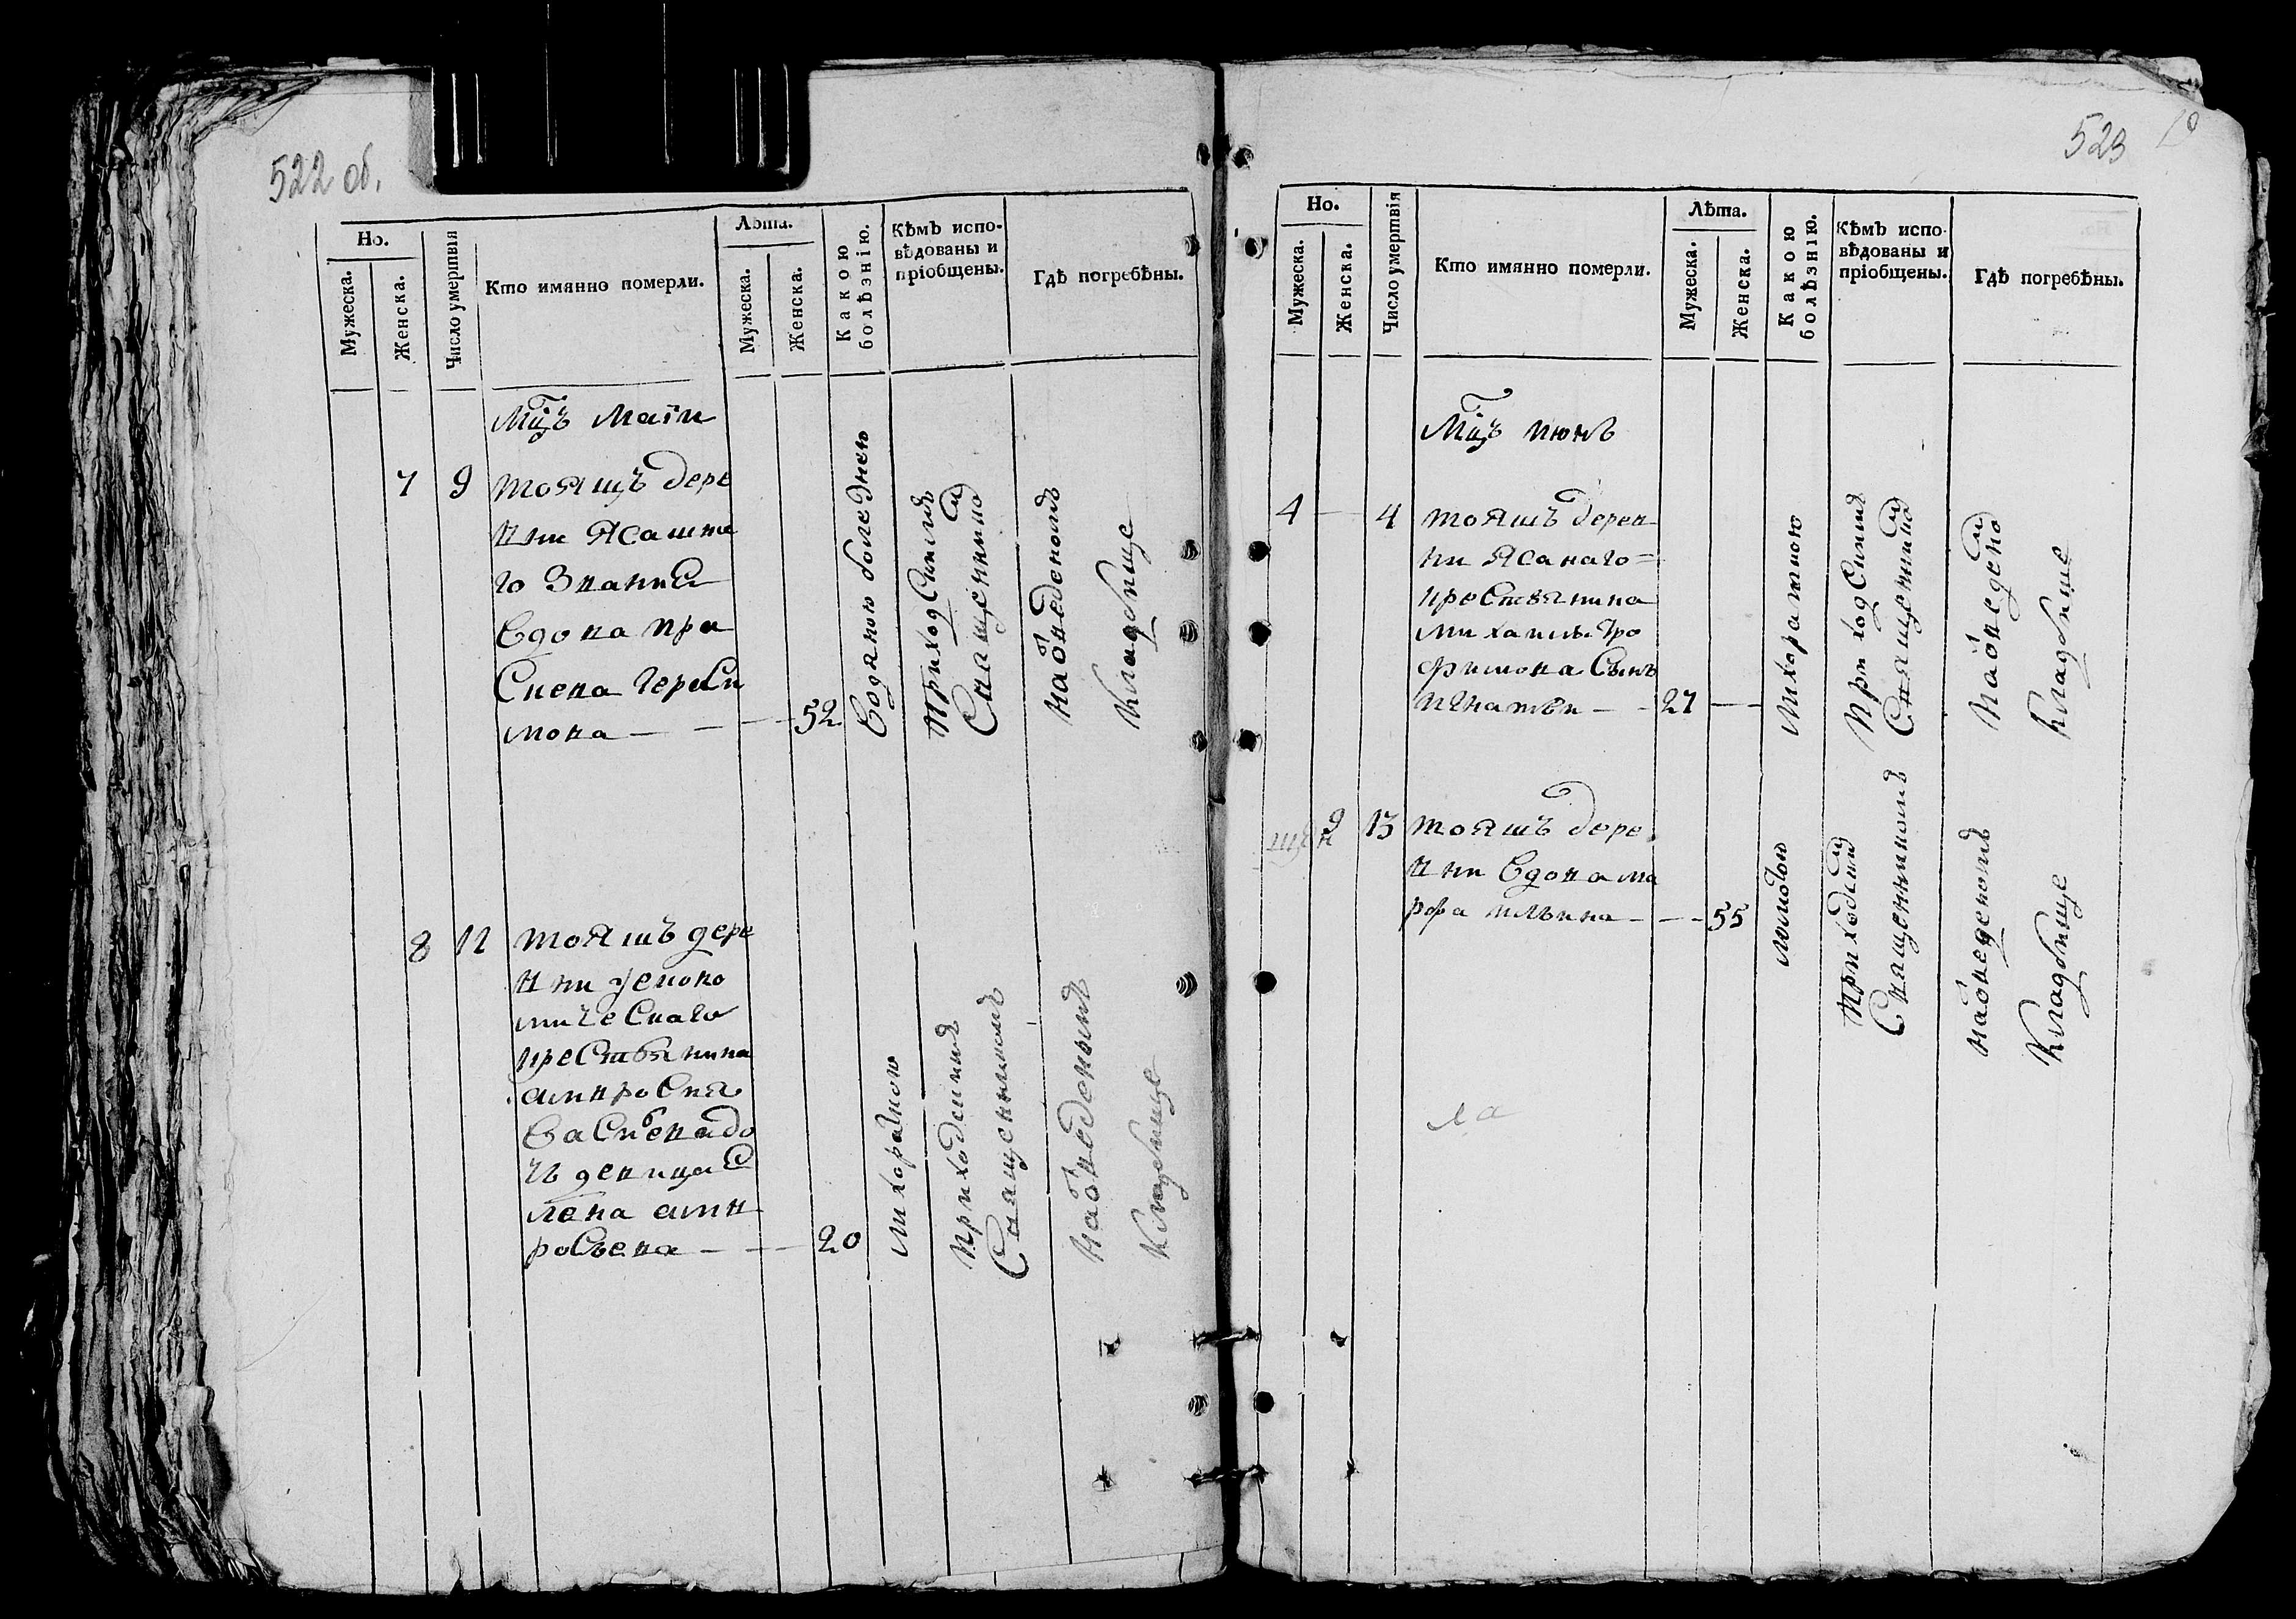 522 об.
Но.
Мужеска.
Женска.
Число умертвія
Кто имянно померли.
Лѣта.
Мужеска.
Женска.
Какою
болѣзнію.
Кѣмъ испо-
вѣдованы и
пріобщены.
Гдѣ погребѣны.
Мцъ Маіи
7 9 тояжъ дере
вни Ясашна
го Званиѧ
Вдова пра
Сковя Гераси
мова — 52
Водяною болезнею
Приходским
Священнико
На отведеномъ
Кладбище
8 11 тояжъ дере
вни
кресTьянина
амвросия
дочь девица
лена амв
росьева — 20
лихорадкою
Приходским
Священникомъ
На отведеномъ
Кладбище
523
Но.
Мужеска.
Женска.
Число умертвія
Кто имянно померли.
Лѣта.
Мужеска.
Женска.
Какою
болѣзнію.
Кѣмъ испо-
вѣдованы и
пріобщены.
Гдѣ погребѣны.
Мцъ июнь
4 — 4 тояжъ дерев
ни Ясанаго
крестьянина
михаилы тро
фимова Сынъ
игнатеи — 27 —
лихораткою
Приходским
Священнико
На отведено
Кладбище
9 13 тояжъ дере
вни Вдова ма
рфа ильина — 55
Приходским
Священникомъ
На отведеномъ
Кладбище